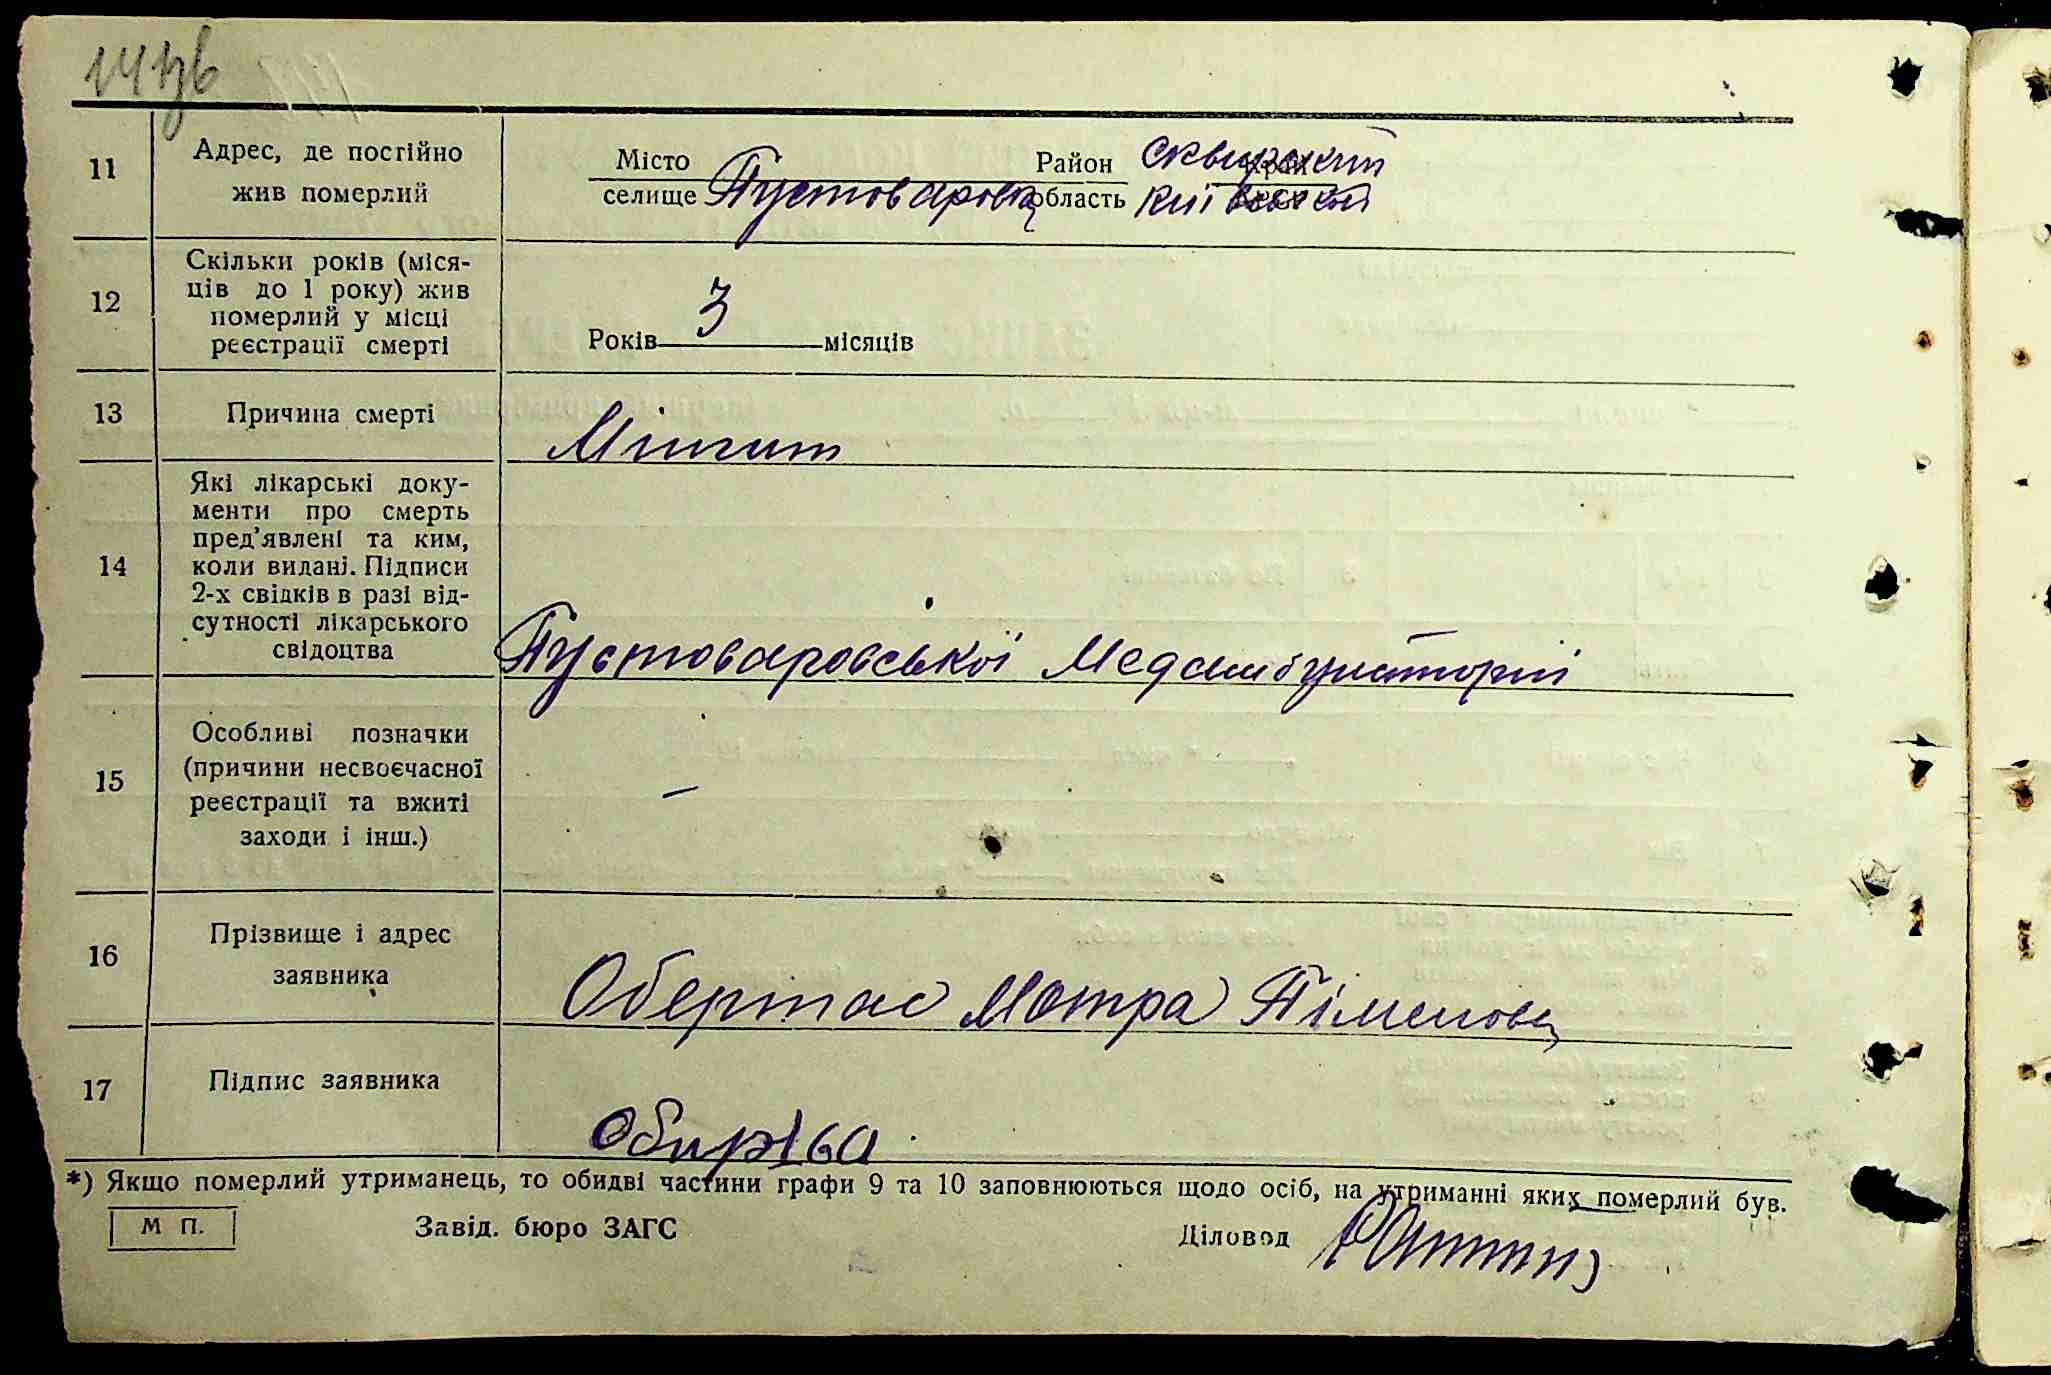 11 Адрес, де постійно жив померлий
Місто селище Пустоваровка Район Сквирский область Київській
12 Скільки років (міся-
ців до 1 року) жив
померлий у місці
реєстрації смерті
Років 3 місяців
13 Причина смерті
14 Які лікарські доку-
менти про смерть
пред'явлені та ким,
коли видані. Підписи
2-х свідків в разі від-
сутності лікарського
свідоцтва
Пустоваровської Медамбулаторії
15 Особливі позначки
(причини несвоєчасної
реєстрації та вжиті
заходи і інш.)
–
16 Прізвище і адрес
заявника
Обертас Мотра Піменовна
17 Підпис заявника
*) Якщо померлий утриманець, то обидві частини графи 9 та 10 заповнюються щодо осіб, на утриманні яких померлий був.
М П. Завід. бюро ЗАГС Діловод